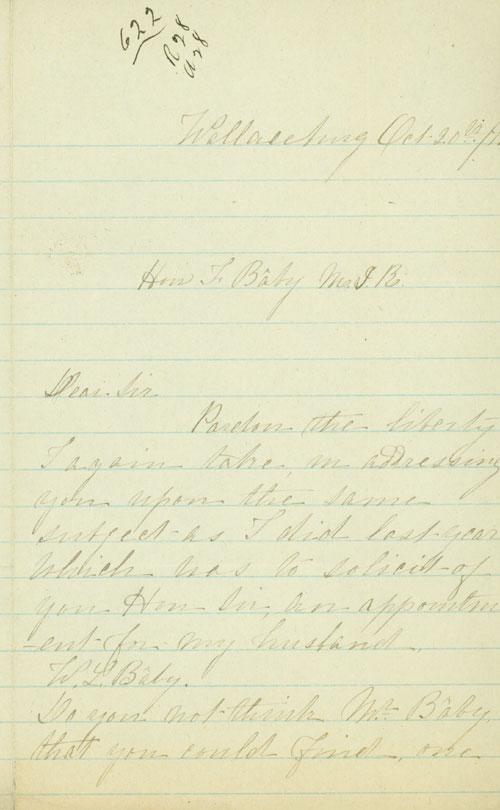 622
R28
A28
Wallaceburg Oct. 20th
Hon F. Bâby M.
Dear Sir
Pardon the liberty
I again take in addressing
you upon the same
subject as I did last year
Which was to solicit of
you Hon Sir, an appointm
-ent for my husband.
W. L. Bâby.
Do you not think Mr. Bâby,
that you could find, one